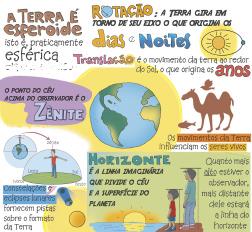 A TERRA É
esferoide
isto é, praticamente
esférica
ROTAÇÃO: A TERRA GIRA EM
TORNO DE SEU EIXO O QUE ORIGINA OS
dias e Noites
Translação é o movimento da terra ao redor
do Sol, o que origina os anos
O PONTO DO CÉU
ACIMA DO OBSERVADOR É O
ZÊNITE
Os movimentos da Terra
influenciam os seres vivos
Constelações e
eclipses lunares
fornecem pistas
sobre o formato
da Terra
HORIZONTE
É A LINHA IMAGINÁRIA
QUE DIVIDE O CÉU
E A SUPERFÍCIE DO
PLANETA
Quanto mais
alto estiver o
observador,
mais distante
dele estará
a linha do
horizonte